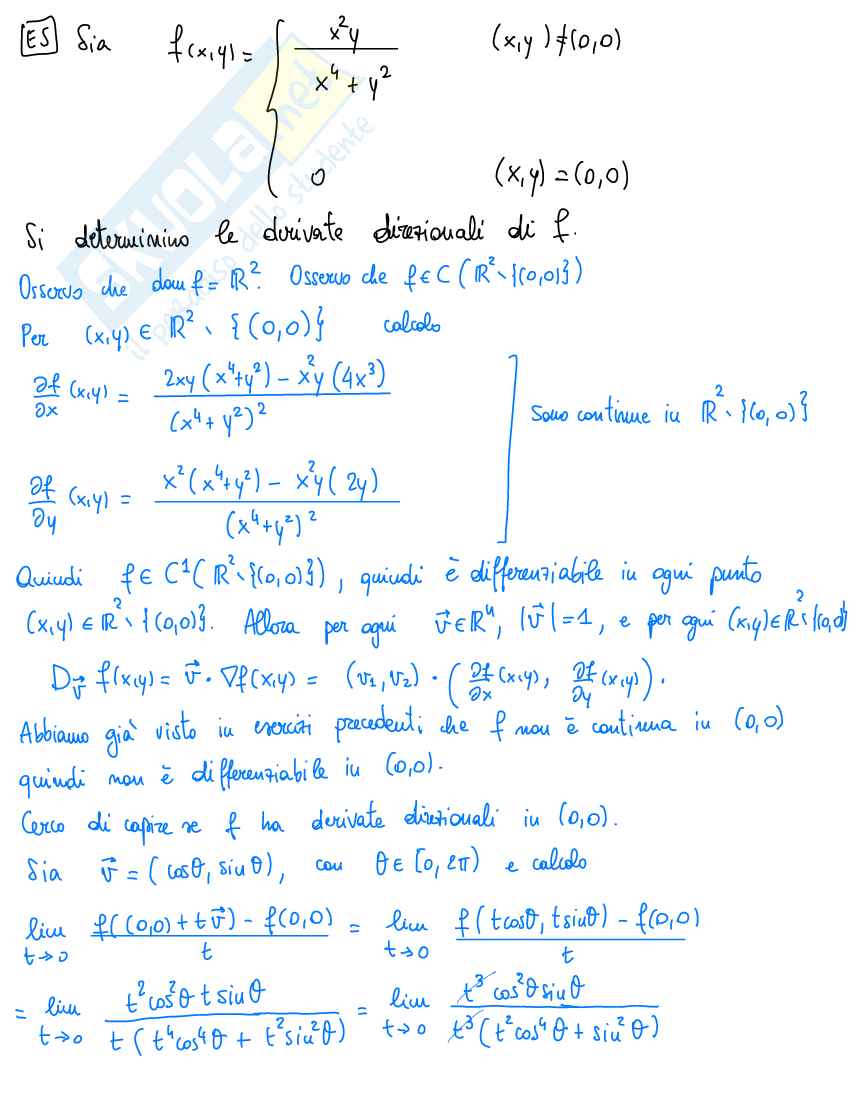 ES Sia f(x,y) = { x²y / (x⁴ + y²) (x,y) ≠ (0,0)
0 (x,y) = (0,0)
Si determinino le derivate direzionali di f.
Osservo che dom f = ℝ². Osservo che f ∈ C(ℝ²∖{(0,0)})
Per (x,y) ∈ ℝ²∖{(0,0)} calcolo
∂f/∂x (x,y) = (2xy(x⁴+y²) − x²y(4x³)) / (x⁴+y²)²
sono continue in ℝ²∖{(0,0)}
∂f/∂y (x,y) = (x²(x⁴+y²) − x²y(2y)) / (x⁴+y²)²
Quindi f ∈ C¹(ℝ²∖{(0,0)}), quindi è differenziabile in ogni punto
(x,y) ∈ ℝ²∖{(0,0)}. Allora per ogni v⃗ ∈ ℝⁿ, |v⃗| = 1, e per ogni (x,y) ∈ ℝ²∖{(0,0)}
D_v⃗ f(x,y) = v⃗ · ∇f(x,y) = (v₁,v₂) · (∂f/∂x (x,y), ∂f/∂y (x,y)).
Abbiamo già visto in esercizi precedenti che f non è continua in (0,0)
quindi non è differenziabile in (0,0).
Cerco di capire se f ha derivate direzionali in (0,0).
Sia v⃗ = (cosθ, sinθ), con θ ∈ [0, 2π) e calcolo
lim t→0 (f((0,0) + tv⃗) − f(0,0)) / t = lim t→0 (f(tcosθ, tsinθ) − f(0,0)) / t
= lim t→0 (t²cos²θ t sinθ) / (t(t⁴cos⁴θ + t²sin²θ)) = lim t→0 (t³cos²θ sinθ) / (t³(t²cos⁴θ + sin²θ))
SKUOLA.net
il paradiso dello studente